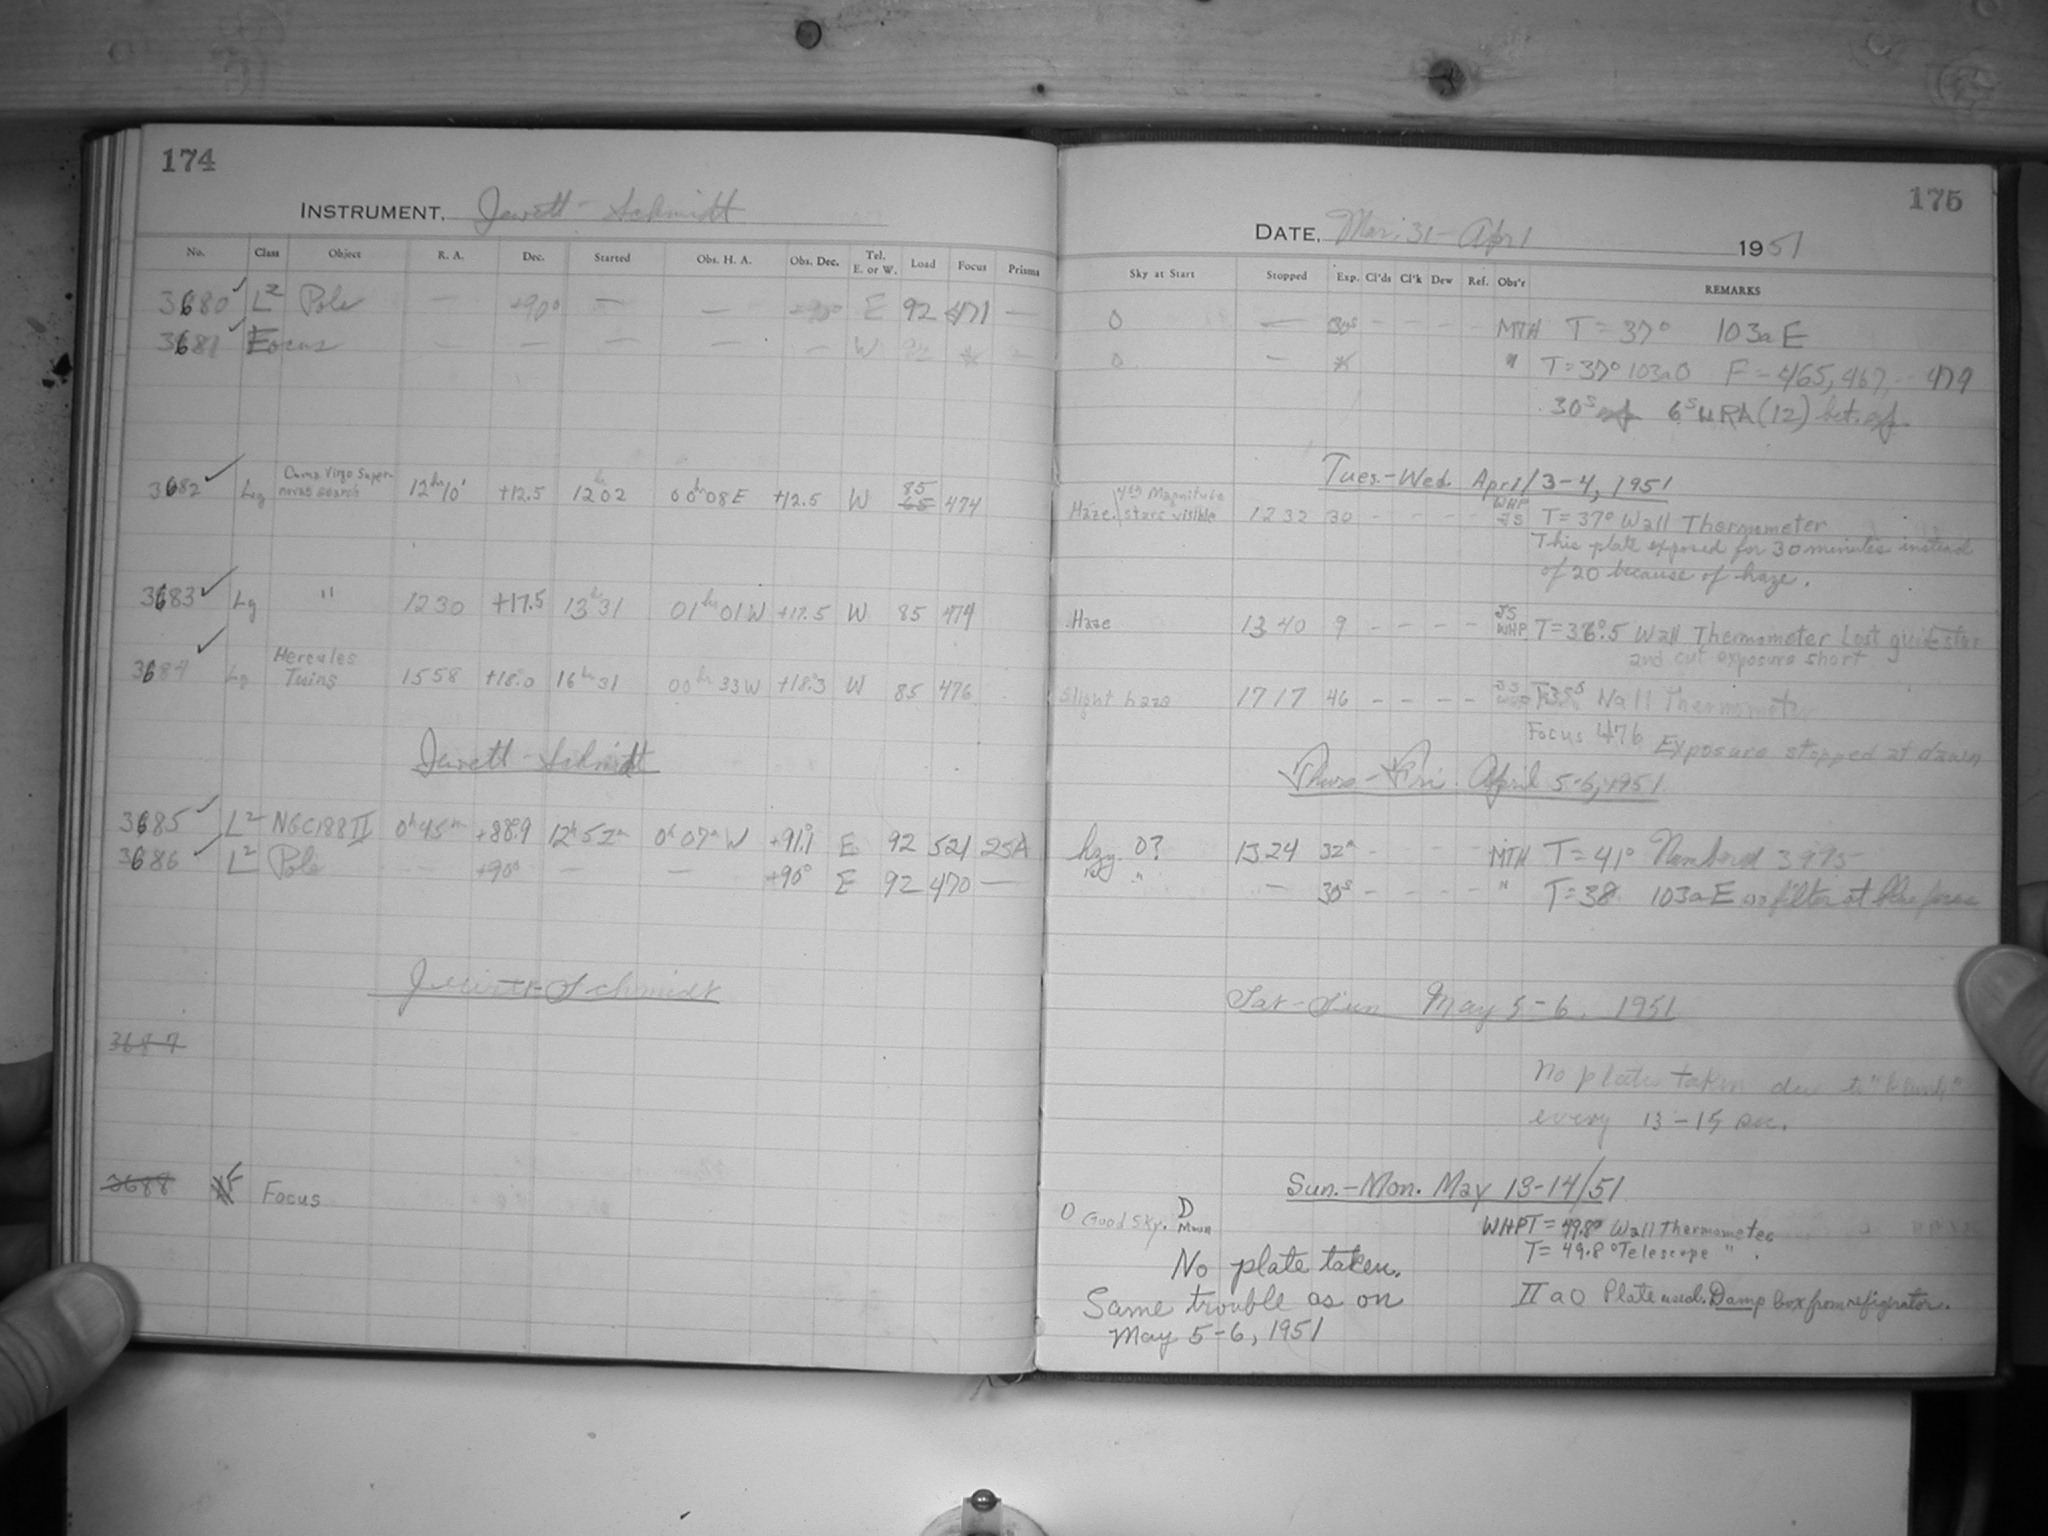 174
INSTRUMENT, Jewett-Schmidt
No. Class Object R. A. Dec. Started Obs. H. A. Obs. Dec. Tel. E. or W. Load Focus Prisms
3680 ✓ L² Pole — +90° — — +90° E 92 471 —
3681 ✓ Focus — — — — — W 92 * —
3682 ✓ Lg Coma Virgo Super-novae search 12 hr 10' +12.5 12 hr 02 00 hr 08 E +12.5 W 85 65 474
3683 ✓ Lg " 12 30 +17.5 13 h 31 01 hr 01 W +17.5 W 85 474
3684 ✓ Lg Hercules Twins 15 58 +18.0 16 hr 31 00 hr 33 W +18.3 W 85 476
Jewett-Schmidt
3685 ✓ L² NGC188 II 0h 45m +88.9 12h 52m 0h 07m W +91.1 E 92 521 25A
3686 ✓ L² Pole — +90° — — +90° E 92 470 —
Jewett-Schmidt
3687
3688 F Focus
175
DATE, Mar. 31 - Apr 1 1951
Sky at Start Stopped Exp. Cl'ds Cl'k Dew Ref. Obs'r REMARKS
0 — 30s - - - - MTH T = 37° 103a E
0 — * " T = 37° 103a O F = 465, 467, -- 479
30s 6s WRA (12) bet.
Tues.-Wed. April 3-4, 1951
Haze. 4th Magnitude stars visible 12 32 30 - - - - WHP JS T = 37° Wall Thermometer
This plate exposed for 30 minutes instead
of 20 because of haze.
Haze 13 40 9 - - - - JS WHP T = 36°.5 Wall Thermometer Lost guide star
and cut exposure short
Slight haze 17 17 46 - - - - JS WHP Wall Thermometer
Focus 476 Exposure stopped at dawn
Thurs-Fri. April 5-6, 1951
hzy 0? 13 24 32m - - - - MTH T = 41° Numbered 3995
" — 30s - - - - " T = 38 103a E no filter at blue focus
Sat-Sun May 5-6, 1951
No plates taken due to
every 13-15 sec.
Sun.-Mon. May 13-14/51
0 Good sky. D Moon WHP T = 49.8° Wall Thermometer
T = 49.8° Telescope "
No plate taken.
Same trouble as on
May 5-6, 1951
II a O Plate used. Damp box from refrigerator.